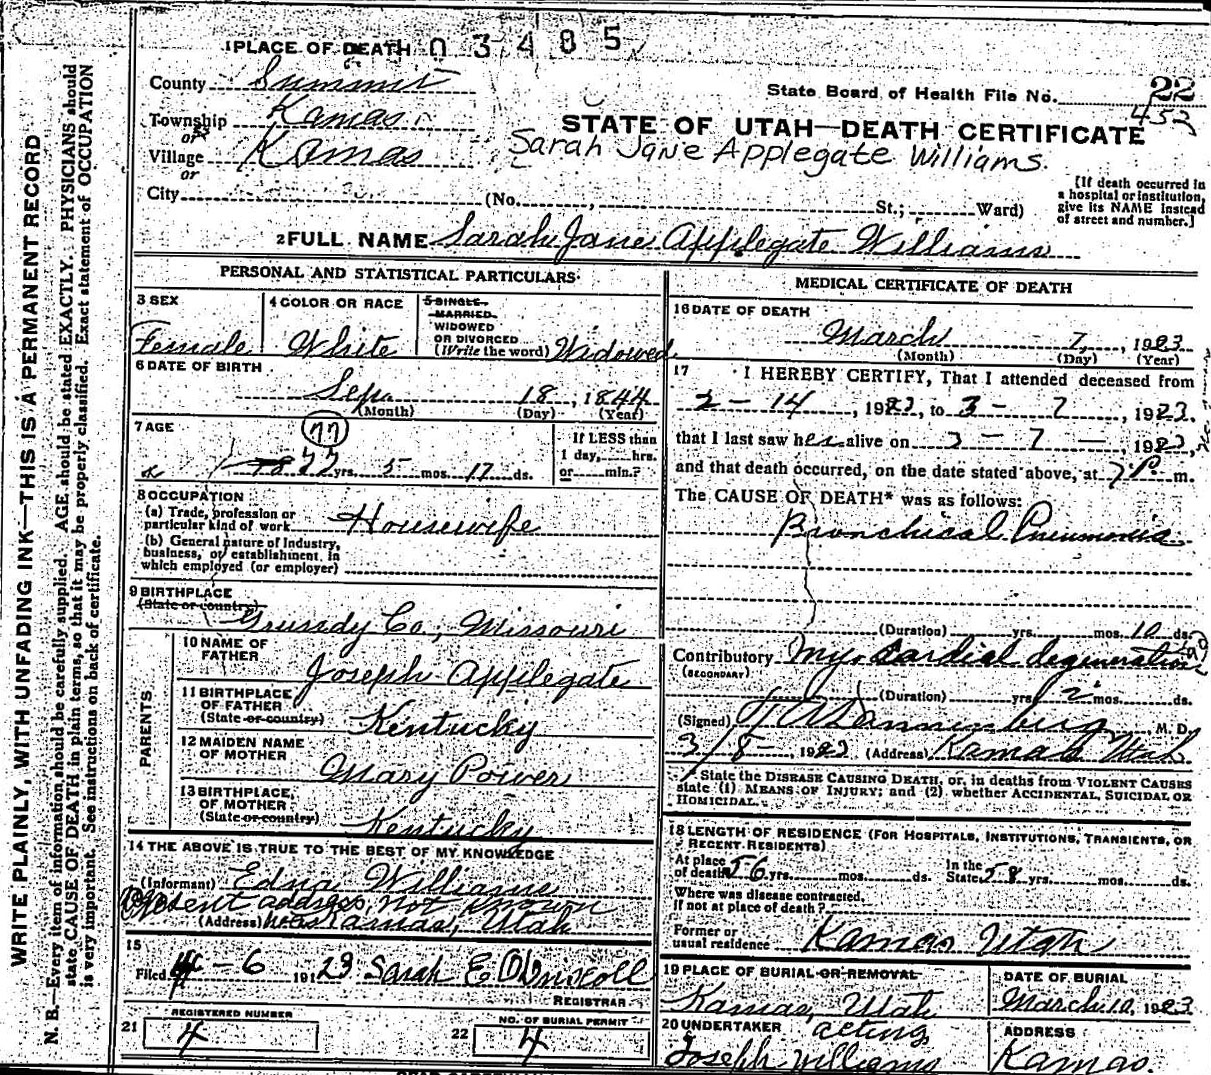 1 PLACE OF DEATH 03485
County Summit
Township Kamas
or
Village Kamas
or
City (No. , St.; Ward)
State Board of Health File No. 22
452
STATE OF UTAH—DEATH CERTIFICATE
Sarah Jane Applegate Williams.
[If death occurred in
a hospital or institution,
give its NAME instead
of street and number.]
2 FULL NAME Sarah Jane Applegate Williams
PERSONAL AND STATISTICAL PARTICULARS
3 SEX
Female
4 COLOR OR RACE
White
5 SINGLE
MARRIED
WIDOWED
OR DIVORCED
(Write the word) Widowed
6 DATE OF BIRTH
Sep 18, 1844
(Month) (Day) (Year)
7 AGE
(77)
78 77 yrs. 5 mos. 17 ds.
If LESS than
1 day, hrs.
or min.?
8 OCCUPATION
(a) Trade, profession or
particular kind of work Housewife
(b) General nature of Industry,
business, or establishment in
which employed (or employer)
9 BIRTHPLACE
(State or country)
Grundy Co, Missouri
PARENTS
10 NAME OF
FATHER
Joseph Applegate
11 BIRTHPLACE
OF FATHER
(State or country) Kentucky
12 MAIDEN NAME
OF MOTHER
Mary Power
13 BIRTHPLACE
OF MOTHER
(State or country) Kentucky
14 THE ABOVE IS TRUE TO THE BEST OF MY KNOWLEDGE
(Informant) Edna Williams
Present address, not known
(Address) was Kamas, Utah
15
Filed 4-6 1923 Sarah E O'Driscoll
REGISTRAR
REGISTERED NUMBER
21 4
NO. OF BURIAL PERMIT
22 4
MEDICAL CERTIFICATE OF DEATH
16 DATE OF DEATH
March 7, 1923
(Month) (Day) (Year)
17 I HEREBY CERTIFY, That I attended deceased from
2-14, 1923, to 3-7, 1923.
that I last saw her alive on 3-7-, 1923,
and that death occurred, on the date stated above, at 7 P. m.
The CAUSE OF DEATH* was as follows:
Bronchical Pneumonia
(Duration) yrs. mos. 10 ds.
Contributory Myocardial degeneration
(SECONDARY)
(Duration) yrs. 2 mos. ds.
(Signed) Dannenburg, M. D.
3/8-, 1923 (Address) Kamas Utah
State the DISEASE CAUSING DEATH, or, in deaths from VIOLENT CAUSES
state (1) MEANS OF INJURY; and (2) whether ACCIDENTAL, SUICIDAL OR
HOMICIDAL.
18 LENGTH OF RESIDENCE (FOR HOSPITALS, INSTITUTIONS, TRANSIENTS, OR
RECENT RESIDENTS)
At place
of death 56 yrs. mos. ds.
In the
State 58 yrs. mos. ds.
Where was disease contracted,
if not at place of death?
Former or
usual residence Kamas Utah
19 PLACE OF BURIAL OR REMOVAL
Kamas, Utah
DATE OF BURIAL
March 10, 1923
20 UNDERTAKER acting
Joseph Williams
ADDRESS
Kamas.
WRITE PLAINLY, WITH UNFADING INK—THIS IS A PERMANENT RECORD
N. B.—Every item of information should be carefully supplied. AGE should be stated EXACTLY. PHYSICIANS should
state CAUSE OF DEATH in plain terms, so that it may be properly classified. Exact statement of OCCUPATION
is very important. See instructions on back of certificate.